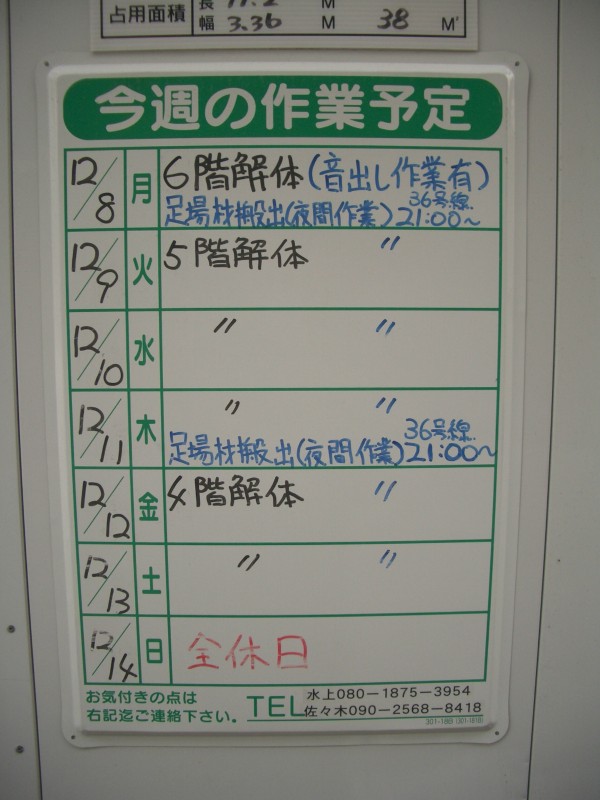 占用面積 長 11.2 M
幅 3.36 M 38 M²
今週の作業予定
12/8 月 6階解体(音出し作業有)
足場材搬出(夜間作業) 36号線 21:00~
12/9 火 5階解体 〃
12/10 水 〃 〃
12/11 木 〃 〃
足場材搬出(夜間作業) 36号線 21:00~
12/12 金 4階解体 〃
12/13 土 〃 〃
12/14 日 全休日
お気付きの点は
右記迄ご連絡下さい。
TEL 水上080-1875-3954
佐々木090-2568-8418